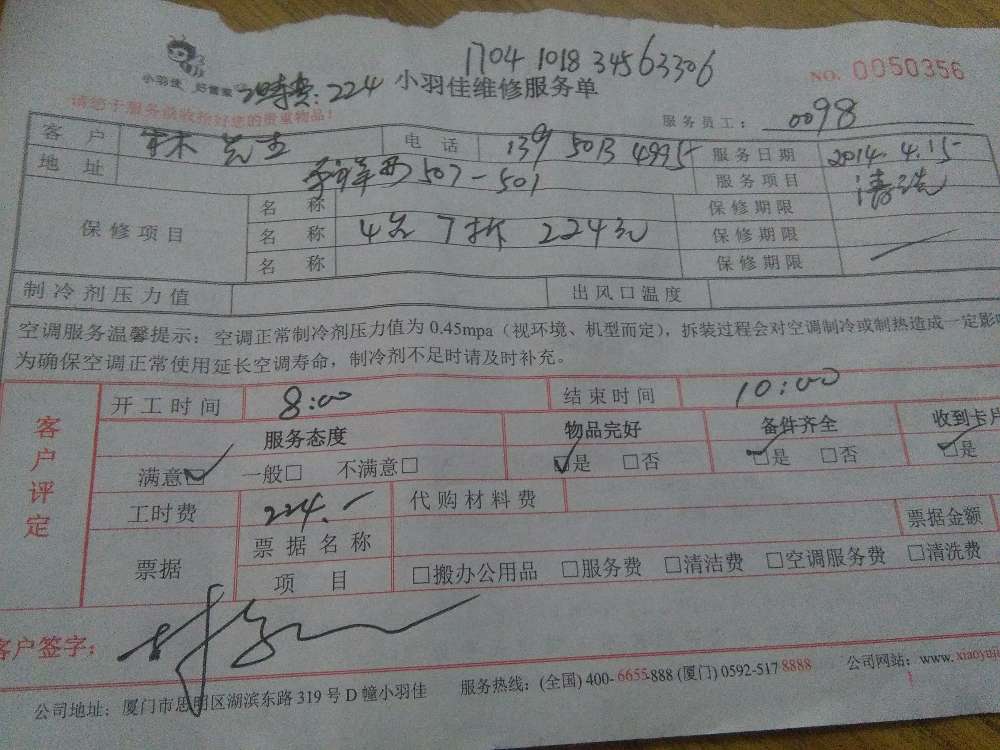 1704 1018 34563306
小羽佳 好管家 工时费:224 小羽佳维修服务单 NO. 0050356
请您于服务前收拾好您的贵重物品! 服务员工: 0098
客户 林先生 电话 139 5013 4995 服务日期 2014.4.15
地址 507-501 服务项目 清洗
保修项目 名称 保修期限
名称 4台 7折 224元 保修期限
名称 保修期限
制冷剂压力值 出风口温度
空调服务温馨提示:空调正常制冷剂压力值为 0.45mpa(视环境、机型而定),拆装过程会对空调制冷或制热造成一定影
为确保空调正常使用延长空调寿命,制冷剂不足时请及时补充。
客户评定
开工时间 8:00 结束时间 10:00
服务态度 物品完好 备件齐全 收到卡片
满意☑ 一般□ 不满意□ ☑是 □否 ☑是 □否 ☑是
工时费 224.- 代购材料费
票据 票据名称 票据金额
项目 □搬办公用品 □服务费 □清洁费 □空调服务费 □清洗费
客户签字:
公司地址:厦门市思明区湖滨东路 319 号 D 幢小羽佳 服务热线:(全国) 400-6655-888 (厦门) 0592-517 8888 公司网站:www.xiaoyuji